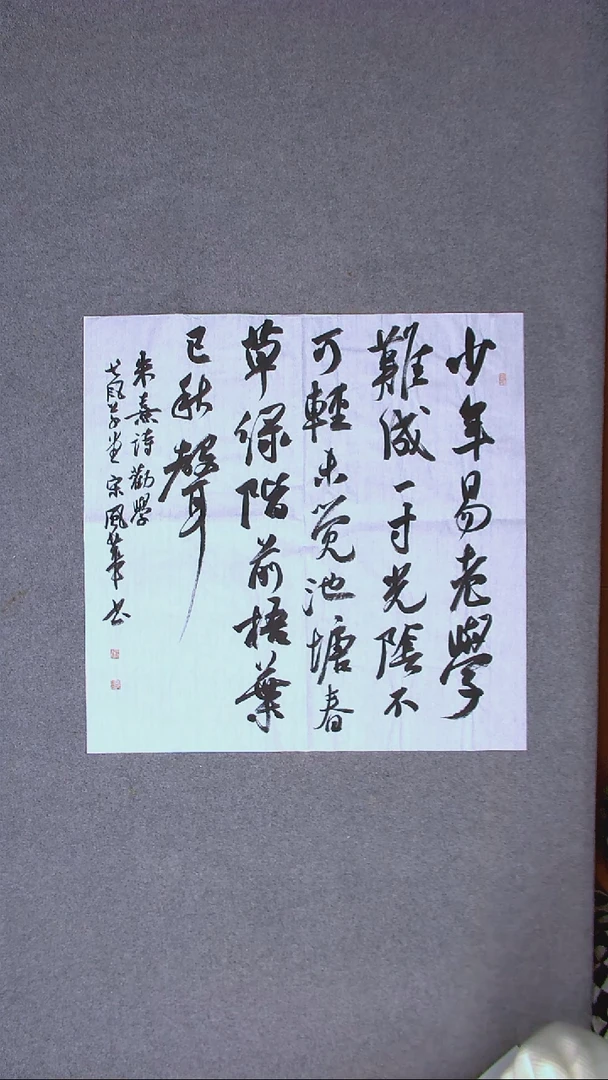 少年易老學
難成一寸光陰不
可輕未觉池塘春
草绿階前梧葉
已秋聲
朱熹詩勸學
草堂宗風華书